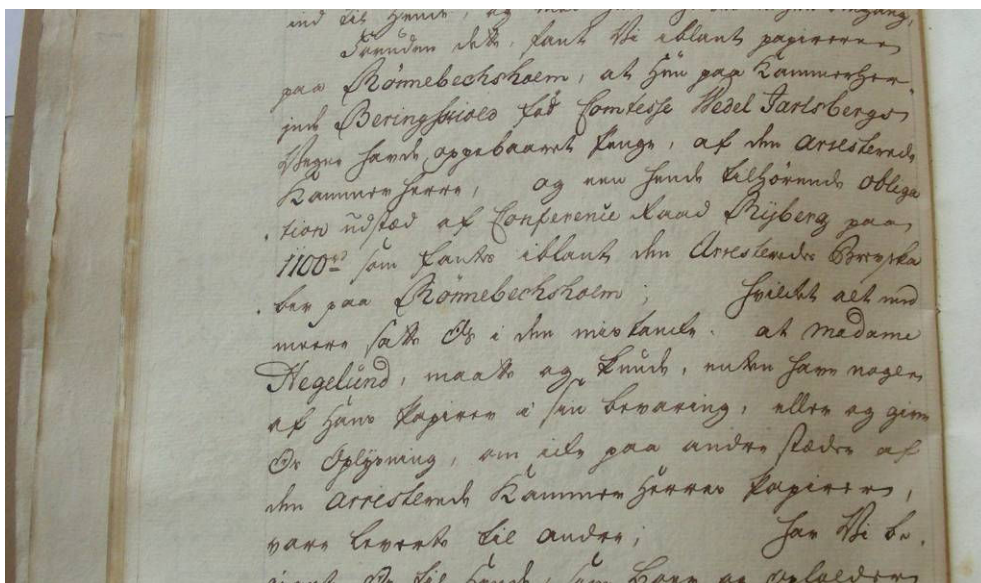 ind til hende, og
Foruden dette, fant Vi iblant papirerne
paa Rönnebechsholm, at Hun paa Kammerher¬
inde Beringskiold fød Comtesse Wedel Jarlsbergs
Vegne havde oppebaaret Penge, af den Arresterede
Kammerherre, og een hende tilhörende obliga
tion udstæd af Conference Raad Rijberg paa
1100rd som fantes iblant den Arresteredes Brevska
ber paa Rönnebechsholm; hvilket alt med
meere satte Os i den mistancke at Madame
Hegelund, maatte og kunde, enten have nogen
af Hans Papirer i sin bevaring, eller og give
Os Oplÿsning, om icke paa andre stæder af
den Arresterede Kammer Herres Papirer,
vare leverte til andre; har Vi be¬
Os til hende, som og opholder